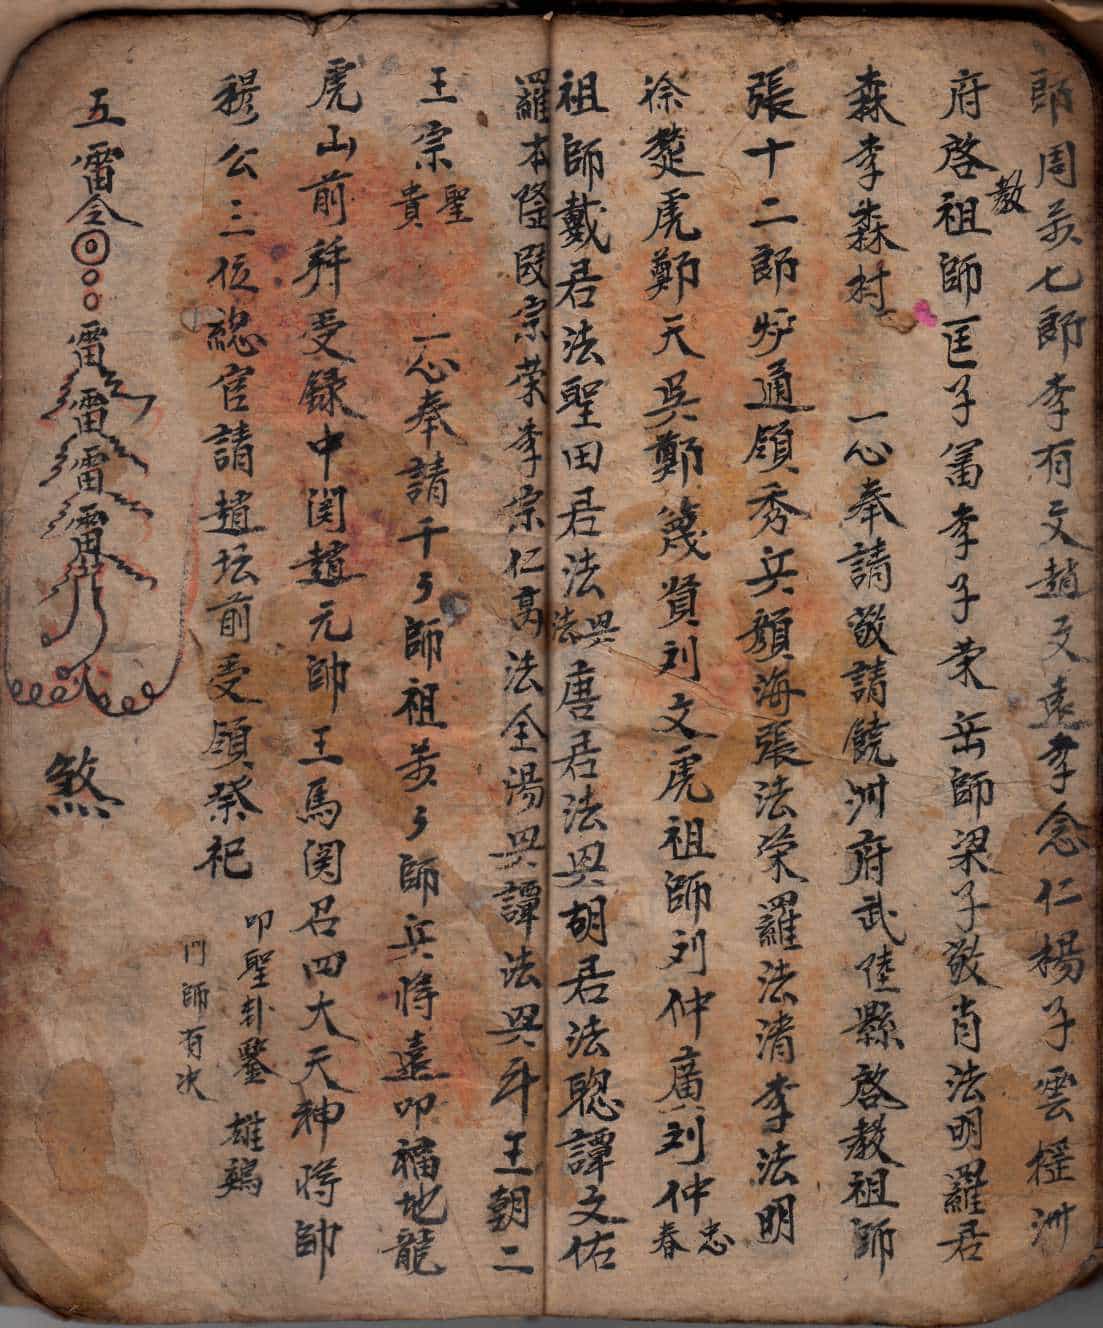 郎周萬七郎李有文趙文遠李念仁楊子雲桱洲
府啓教祖師匡子富李子荣岳師梁子敬肖法明羅君
森李森村 一心奉請敬請饒洲府武陸縣啓教祖師
張十二郎妙通領秀兵顏海張法荣羅法清李法明
徐 虎鄭天吳鄭 賢刘文虎祖師刘仲廣刘仲忠春
祖師戴君法聖田君法興法唐君法興胡君法聰譚文佑
羅本隆段宗荣李宗仁萬法全湯興譚法興斗王朝二
王宗聖貴 一心奉請千々師祖万々師兵將遠叩福地龍
虎山前拜受錄中関趙元帥王馬関召四大天神將帥
穆公三位総官請趙坛前受領祭祀
叩聖卦鑒 雄鷄
門師有次
五雷令
雷
雷
雷
雷
煞